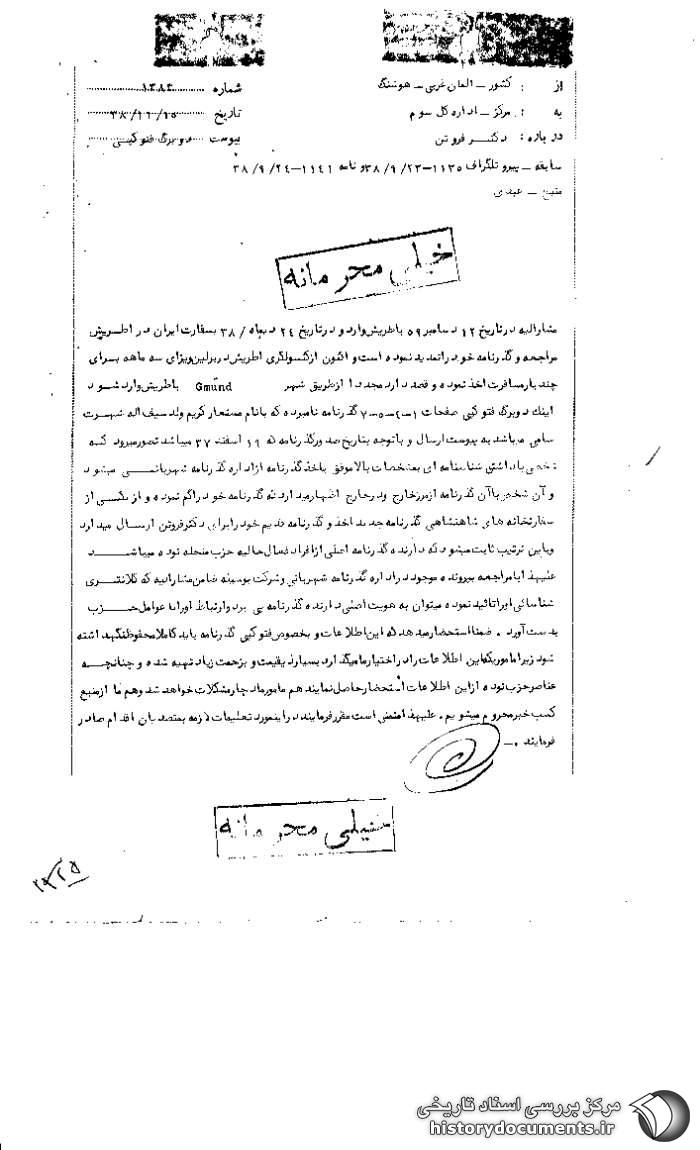 از : کشور ـ آلمان غربی ـ هوشنگ
شماره ۱۳۸۳
به : مرکز ـ اداره کل سوم
تاریخ ۳۸/۱۱/۱۵
درباره : دکتر فروتن
پیوست دو برگ فتوکپی
سابقه ـ پیرو تلگراف ۱۱۳۵ـ۳۸/۹/۲۳ و نامه ۱۱۴۱ـ۳۸/۹/۲۴
منبع ـ عبدی
خیلی محرمانه
مشارالیه در تاریخ ۱۲ دسامبر ۵۹ باطریش وارد و در تاریخ ۲۴ دیماه / ۳۸ بسفارت ایران در اطریش
مراجعه و گذرنامه خود را تمدید نموده است و اکنون از کنسولگری اطریش در برلین ویزای سه ماهه برای
چند بار مسافرت اخذ نموده و قصد دارد مجددا از طریق شهر Gmünd باطریش وارد شود
اینك دو برگ فتوکپی صفحات ۱ـ۴ـ۵ـ۷ گذرنامه نامبرده که بانام مستعار کریم ولد سیف اله شهرت
سامی میباشد به پیوست ارسال و با توجه بتاریخ صدور گذرنامه که ۱۹ اسفند ۳۷ میباشد تصور میرود که
شخصی باداشتن شناسنامه ای بمشخصات بالا موفق باخذ گذرنامه از اداره گذرنامه شهربانی میشود
و آن شخص با آن گذرنامه از مرز خارج و در خارج اظهار میدارد که گذرنامه خود را گم نموده و از یکی از
سفارتخانه های شاهنشاهی گذرنامه جدید اخذ و گذرنامه قدیم خود را برای دکتر فروتن ارسال میدارد
و باین ترتیب ثابت میشود که دارنده گذرنامه اصلی از افراد فعال حالیه حزب منحله توده میباشد
علیهذا با مراجعه بپرونده موجود در اداره گذرنامه شهربانی و شرکت بوسیله ضامن مشارالیه که کلانتری
شناسائی او را تائید نموده میتوان به هویت اصلی دارنده گذرنامه پی برد و ارتباط او را با عوامل حزب
بدست آورد . ضمنا استحضار میدهد که این اطلاعات و بخصوص فتوکپی گذرنامه باید کاملا محفوظ نگهداشته
شود زیرا ماموریکه این اطلاعات را در اختیار ما میگذارد بسیار ذیقیمت و بزحمت زیاد تهیه شده و چنانچه
عناصر حزب توده از این اطلاعات استحضار حاصل نمایند هم مامور ما دچار مشکلات خواهد شد و هم ما از منبع
کسب خبر محروم میشویم . علیهذا متمنی است مقرر فرمایند در اینمورد تعلیمات لازمه بمتصدیان اقدام صادر
فرمایند .ـ
خیلی محرمانه
مرکز بررسی اسناد تاریخی
historydocuments.ir